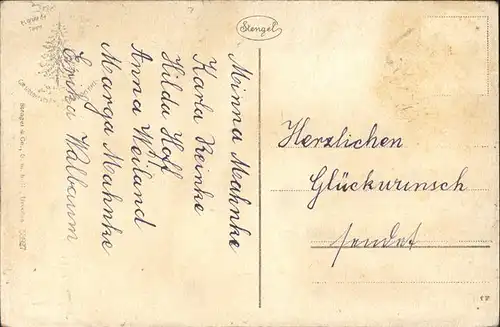 Stengel
Minna Mahnke
Karla Reinke
Hilda Hoff
Anna Weiland
Marga Mahnke
Erika Walbaum
Herzlichen
Glückwunsch
sendet
Stengel & Co., G. m. b. H., Dresden